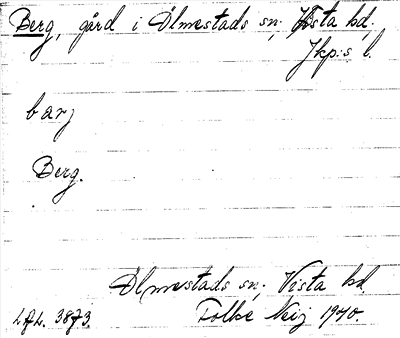 Berg, gård i Ölmestads sn; Vista hd.
Jkp:s l.
barj
Berg.
Ölmestads sn; Vista hd.
Folke Neij 1940.